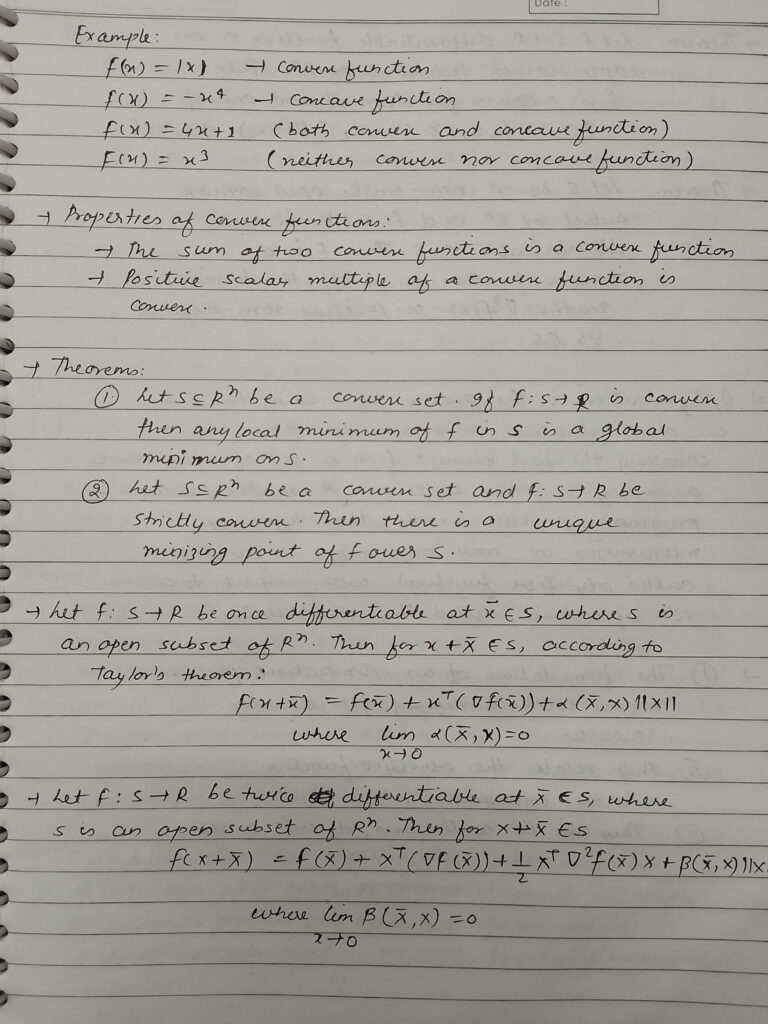 Date :
Example:
f(x) = |x| → Convex function
f(x) = -x⁴ → Concave function
f(x) = 4x+1 (both convex and concave function)
f(x) = x³ (neither convex nor concave function)
→ Properties of convex functions:
→ The sum of two convex functions is a convex function
→ Positive scalar multiple of a convex function is
convex.
→ Theorems:
① Let S⊆Rⁿ be a convex set. If f: S→R is convex
then any local minimum of f in S is a global
minimum on S.
② Let S⊆Rⁿ be a convex set and f: S→R be
strictly convex. Then there is a unique
minizing point of f over S.
→ Let f: S→R be once differentiable at x̄ ∈ S, where S is
an open subset of Rⁿ. Then for x+x̄ ∈ S, according to
Taylor's theorem:
f(x+x̄) = f(x̄) + xᵀ(∇f(x̄)) + α(x̄,x)||x||
where lim α(x̄,x)=0
x→0
→ Let f: S→R be twice differentiable at x̄ ∈ S, where
S is an open subset of Rⁿ. Then for x+x̄ ∈ S
f(x+x̄) = f(x̄) + xᵀ(∇f(x̄)) + 1/2 xᵀ∇²f(x̄)x + β(x̄,x)||x
where lim β(x̄,x) = 0
x→0